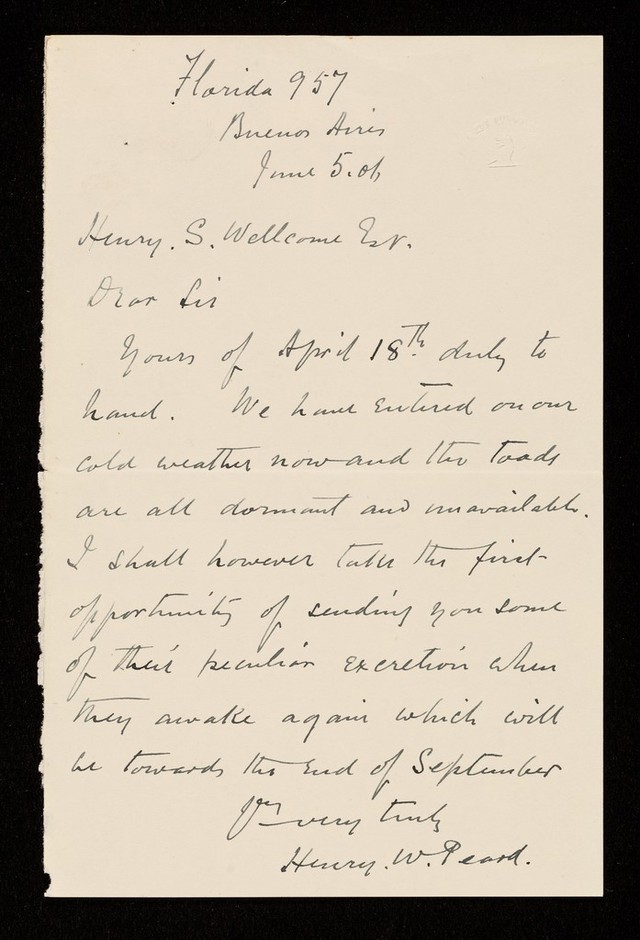 Florida 957
Buenos Aires
June 5. 06
Henry. S. Wellcome Esqr.
Dear Sir
Yours of April 18th. duly to
hand. We have entered on our
cold weather now and the toads
are all dormant and unavailable.
I shall however take the first
opportunity of sending you some
of their peculiar excretion when
they awake again which will
be towards the end of September
Yrs very truly
Henry. W. Peard.